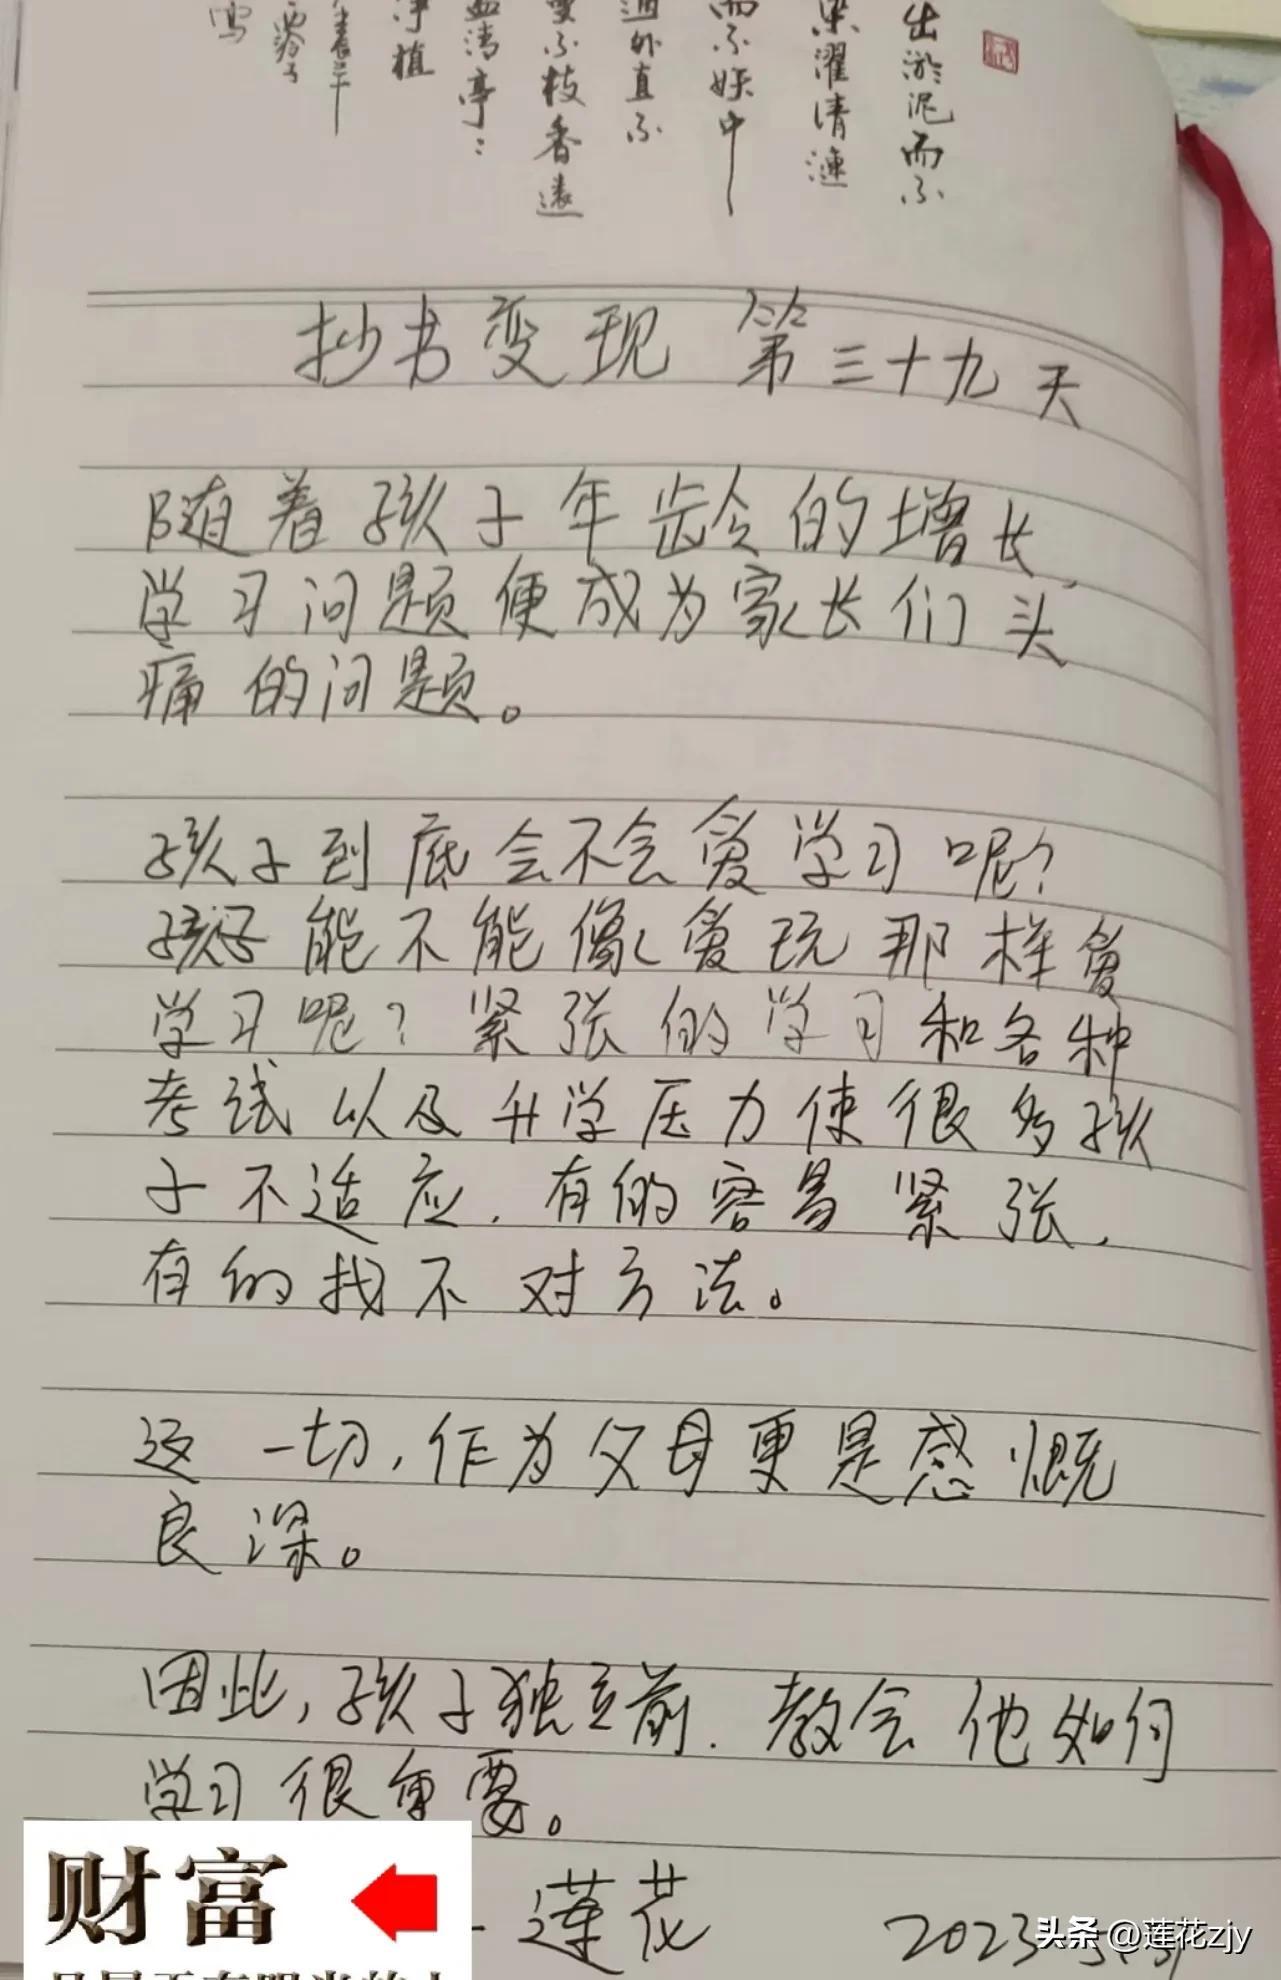 出淤泥而不
染濯清涟
而不妖中
通外直不
蔓不枝香远
益清亭亭
净植
抄书变现 第三十九天
随着孩子年龄的增长,
学习问题便成为家长们头
痛的问题。
孩子到底会不会爱学习呢?
孩子能不能像爱玩那样爱
学习呢?紧张的学习和各种
考试以及升学压力使很多孩
子不适应,有的容易紧张,
有的找不对方法。
这一切,作为父母更是感慨
良深。
因此,孩子独立前,教会他如何
学习很重要。
莲花 2023
财富
头条 @莲花zjy